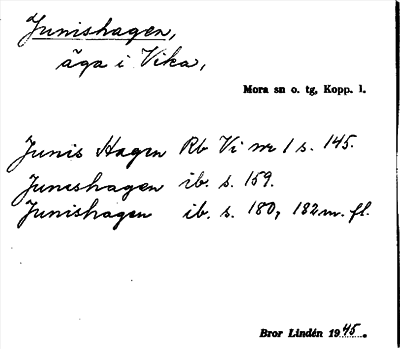 Junishagen,
äga i Vika,
Mora sn o. tg, Kopp. l.
Junis Hagen Rb Vi nr 1 s. 145.
Juneshagen ib. s. 159.
Junishagen ib. s. 180, 182 m. fl.
Bror Lindén 1945.